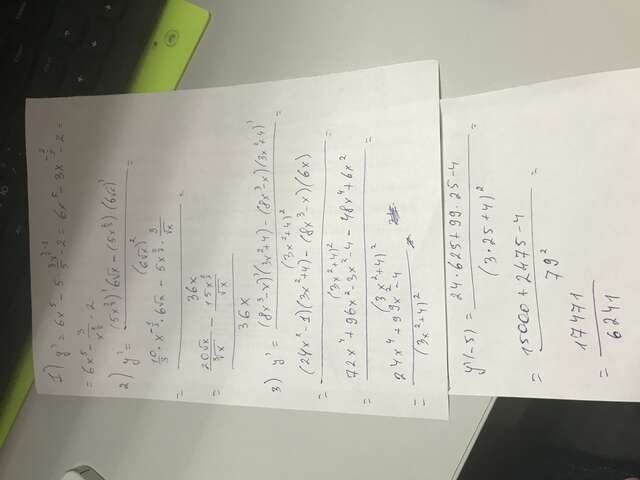 1) y' = 6x⁵ - 5 · (3x^(-2/5))/5 - 2 = 6x⁵ - 3x^(-2/5) - 2 =
= 6x⁵ - 3/x^(2/5) - 2
2) y' = ((5x^(2/3))' 6√x - (5x^(2/3))(6√x)')/(6√x)² =
= (10/3 · x^(-1/3) · 6√x - 5x^(2/3) · 3/√x)/36x =
= (20√x/∛x - 15x^(2/3)/√x)/36x
3) y' = ((8x³-x)'(3x²+4) - (8x³-x)(3x²+4)')/(3x²+4)² =
= ((24x²-1)(3x²+4) - (8x³-x)(6x))/(3x²+4)² =
= (72x⁴ + 96x² - 3x² - 4 - 48x⁴ + 6x²)/(3x²+4)² =
= (24x⁴ + 99x² - 4)/(3x²+4)²
y'(-5) = (24·625 + 99·25 - 4)/(3·25+4)² =
= (15000 + 2475 - 4)/79² =
= 17471/6241